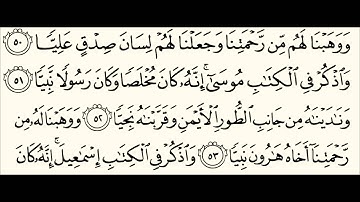 وَوَهَبْنَا لَهُم مِّن رَّحْمَتِنَا وَجَعَلْنَا لَهُمْ لِسَانَ صِدْقٍ عَلِيًّا ٥٠
وَاذْكُرْ فِي الْكِتَابِ مُوسَىٰ إِنَّهُ كَانَ مُخْلَصًا وَكَانَ رَسُولًا نَّبِيًّا ٥١
وَنَادَيْنَاهُ مِن جَانِبِ الطُّورِ الْأَيْمَنِ وَقَرَّبْنَاهُ نَجِيًّا ٥٢ وَوَهَبْنَا لَهُ مِن
رَّحْمَتِنَا أَخَاهُ هَارُونَ نَبِيًّا ٥٣ وَاذْكُرْ فِي الْكِتَابِ إِسْمَاعِيلَ إِنَّهُ كَانَ